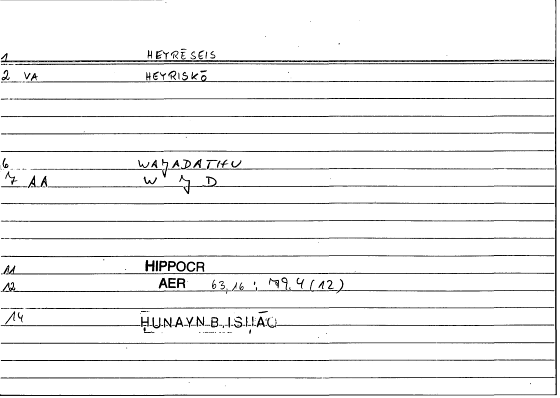 1 HEYRĒSEIS
2 VA HEYRISKŌ
6 WAǦADATHU
7 AA W Ǧ D
11 HIPPOCR
12 AER 63,16 : 79,4 (12)
14 ḤUNAYN B. ISḤĀQ